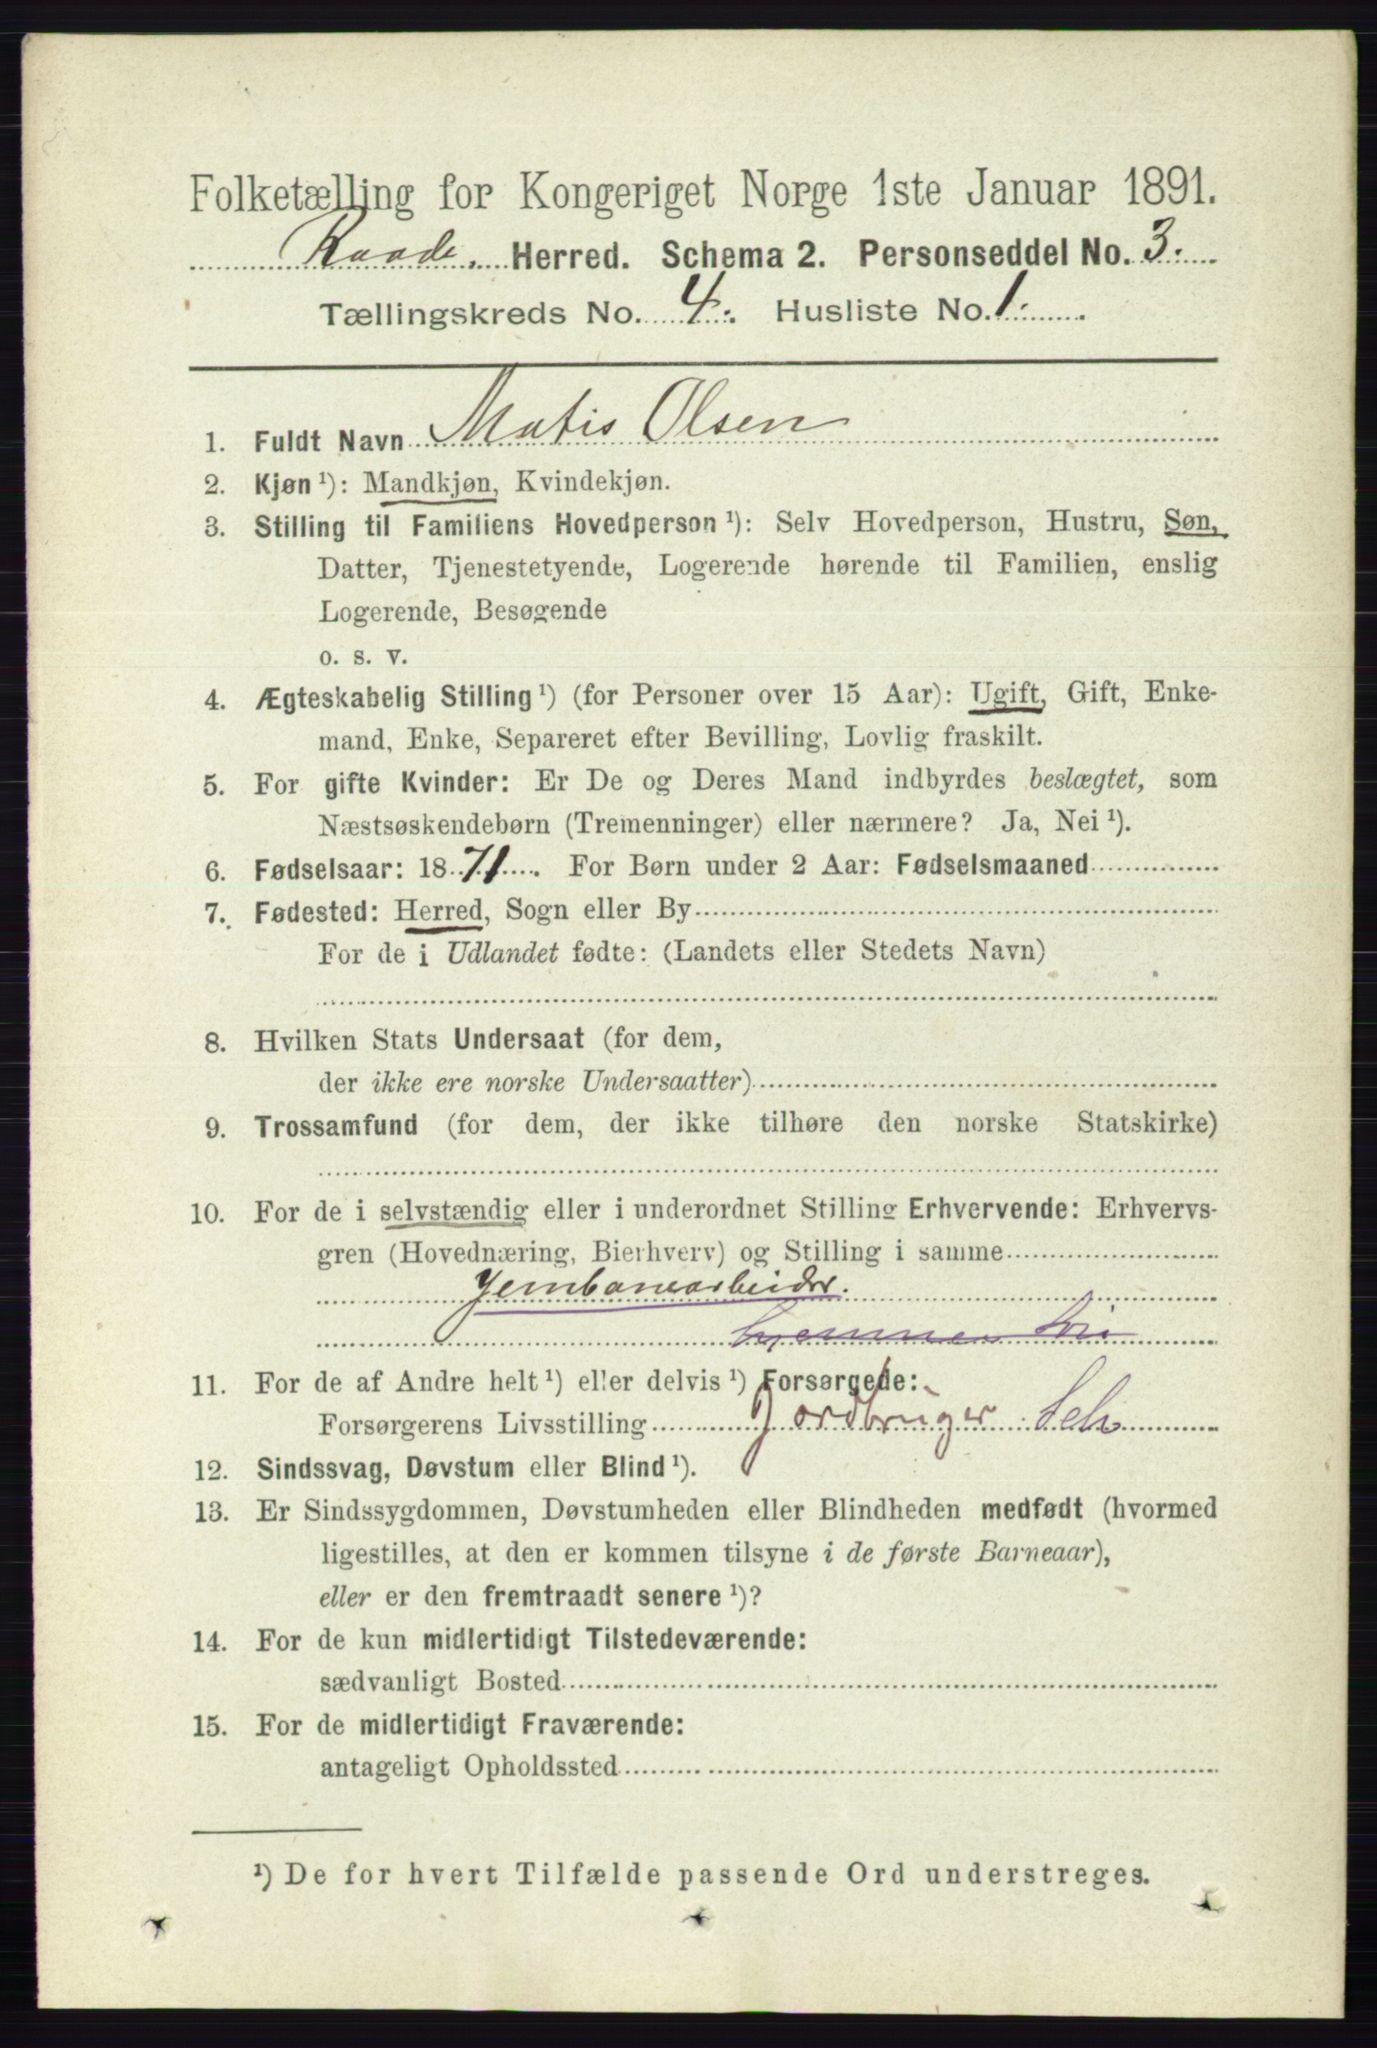 Folketælling for Kongeriget Norge 1ste Januar 1891.
Raade. Herred. Schema 2. Personseddel No. 3.
Tællingskreds No. 4. Husliste No. 1.
1. Fuldt Navn Matis Olsen
2. Kjøn ¹): Mandkjøn, Kvindekjøn.
3. Stilling til Familiens Hovedperson ¹): Selv Hovedperson, Hustru, Søn,
Datter, Tjenestetyende, Logerende hørende til Familien, enslig
Logerende, Besøgende
o. s. v.
4. Ægteskabelig Stilling ¹) (for Personer over 15 Aar): Ugift, Gift, Enke-
mand, Enke, Separeret efter Bevilling, Lovlig fraskilt.
5. For gifte Kvinder: Er De og Deres Mand indbyrdes beslægtet, som
Næstsøskendebørn (Tremenninger) eller nærmere? Ja, Nei ¹).
6. Fødselsaar: 1871. For Børn under 2 Aar: Fødselsmaaned
7. Fødested: Herred, Sogn eller By
For de i Udlandet fødte: (Landets eller Stedets Navn)
8. Hvilken Stats Undersaat (for dem,
der ikke ere norske Undersaatter)
9. Trossamfund (for dem, der ikke tilhøre den norske Statskirke)
10. For de i selvstændig eller i underordnet Stilling Erhvervende: Erhvervs-
gren (Hovednæring, Bierhverv) og Stilling i samme
Jernbanearbeider.
11. For de af Andre helt ¹) eller delvis ¹) Forsørgede:
Forsørgerens Livsstilling Jordbruger Selv
12. Sindssvag, Døvstum eller Blind ¹).
13. Er Sindssygdommen, Døvstumheden eller Blindheden medfødt (hvormed
ligestilles, at den er kommen tilsyne i de første Barneaar),
eller er den fremtraadt senere ¹)?
14. For de kun midlertidigt Tilstedeværende:
sædvanligt Bosted
15. For de midlertidigt Fraværende:
antageligt Opholdssted
¹) De for hvert Tilfælde passende Ord understreges.